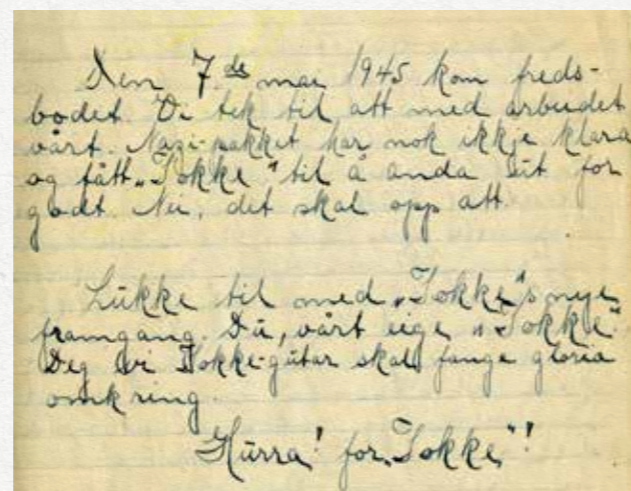 Den 7de mai 1945 kom freds-
bodet. Di tek til att med arbeidet
vårt. Nazi-pakket har nok ikkje klara
og fått „Tokke" til å anda ut for
godt. Nei, det skal opp att.
Lukke til med „Tokke"s nye
framgang. Du, vårt eige „Tokke".
Deg vi Tokke-gutar skal fange gloria
omkring.
Hurra! for „Tokke"!